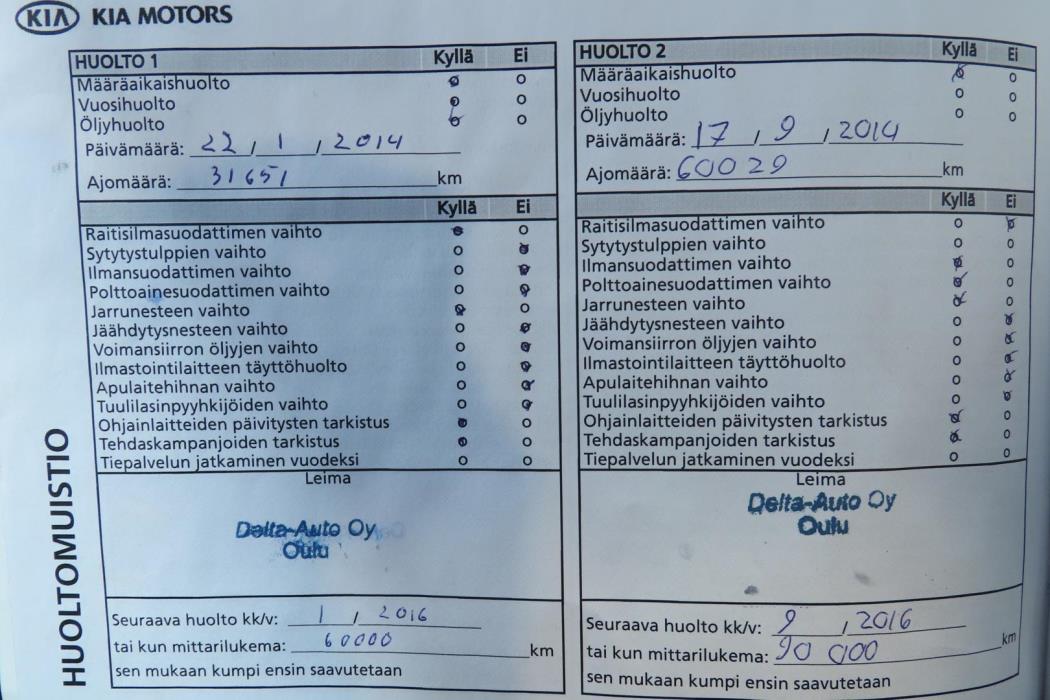 KIA KIA MOTORS
HUOLTO 1 Kyllä Ei
Määräaikaishuolto
Vuosihuolto
Öljyhuolto
Päivämäärä: 22 / 1 / 2014
Ajomäärä: 31651 km
Kyllä Ei
Raitisilmasuodattimen vaihto
Sytytystulppien vaihto
Ilmansuodattimen vaihto
Polttoainesuodattimen vaihto
Jarrunesteen vaihto
Jäähdytysnesteen vaihto
Voimansiirron öljyjen vaihto
Ilmastointilaitteen täyttöhuolto
Apulaitehihnan vaihto
Tuulilasinpyyhkijöiden vaihto
Ohjainlaitteiden päivitysten tarkistus
Tehdaskampanjoiden tarkistus
Tiepalvelun jatkaminen vuodeksi
Leima
Delta-Auto Oy
Oulu
Seuraava huolto kk/v: 1 / 2016
tai kun mittarilukema: 60000 km
sen mukaan kumpi ensin saavutetaan
HUOLTO 2 Kyllä Ei
Määräaikaishuolto
Vuosihuolto
Öljyhuolto
Päivämäärä: 17 / 9 / 2014
Ajomäärä: 60029 km
Kyllä Ei
Raitisilmasuodattimen vaihto
Sytytystulppien vaihto
Ilmansuodattimen vaihto
Polttoainesuodattimen vaihto
Jarrunesteen vaihto
Jäähdytysnesteen vaihto
Voimansiirron öljyjen vaihto
Ilmastointilaitteen täyttöhuolto
Apulaitehihnan vaihto
Tuulilasinpyyhkijöiden vaihto
Ohjainlaitteiden päivitysten tarkistus
Tehdaskampanjoiden tarkistus
Tiepalvelun jatkaminen vuodeksi
Leima
Delta-Auto Oy
Oulu
Seuraava huolto kk/v: 9 / 2016
tai kun mittarilukema: 90 000 km
sen mukaan kumpi ensin saavutetaan
HUOLTOMUISTIO